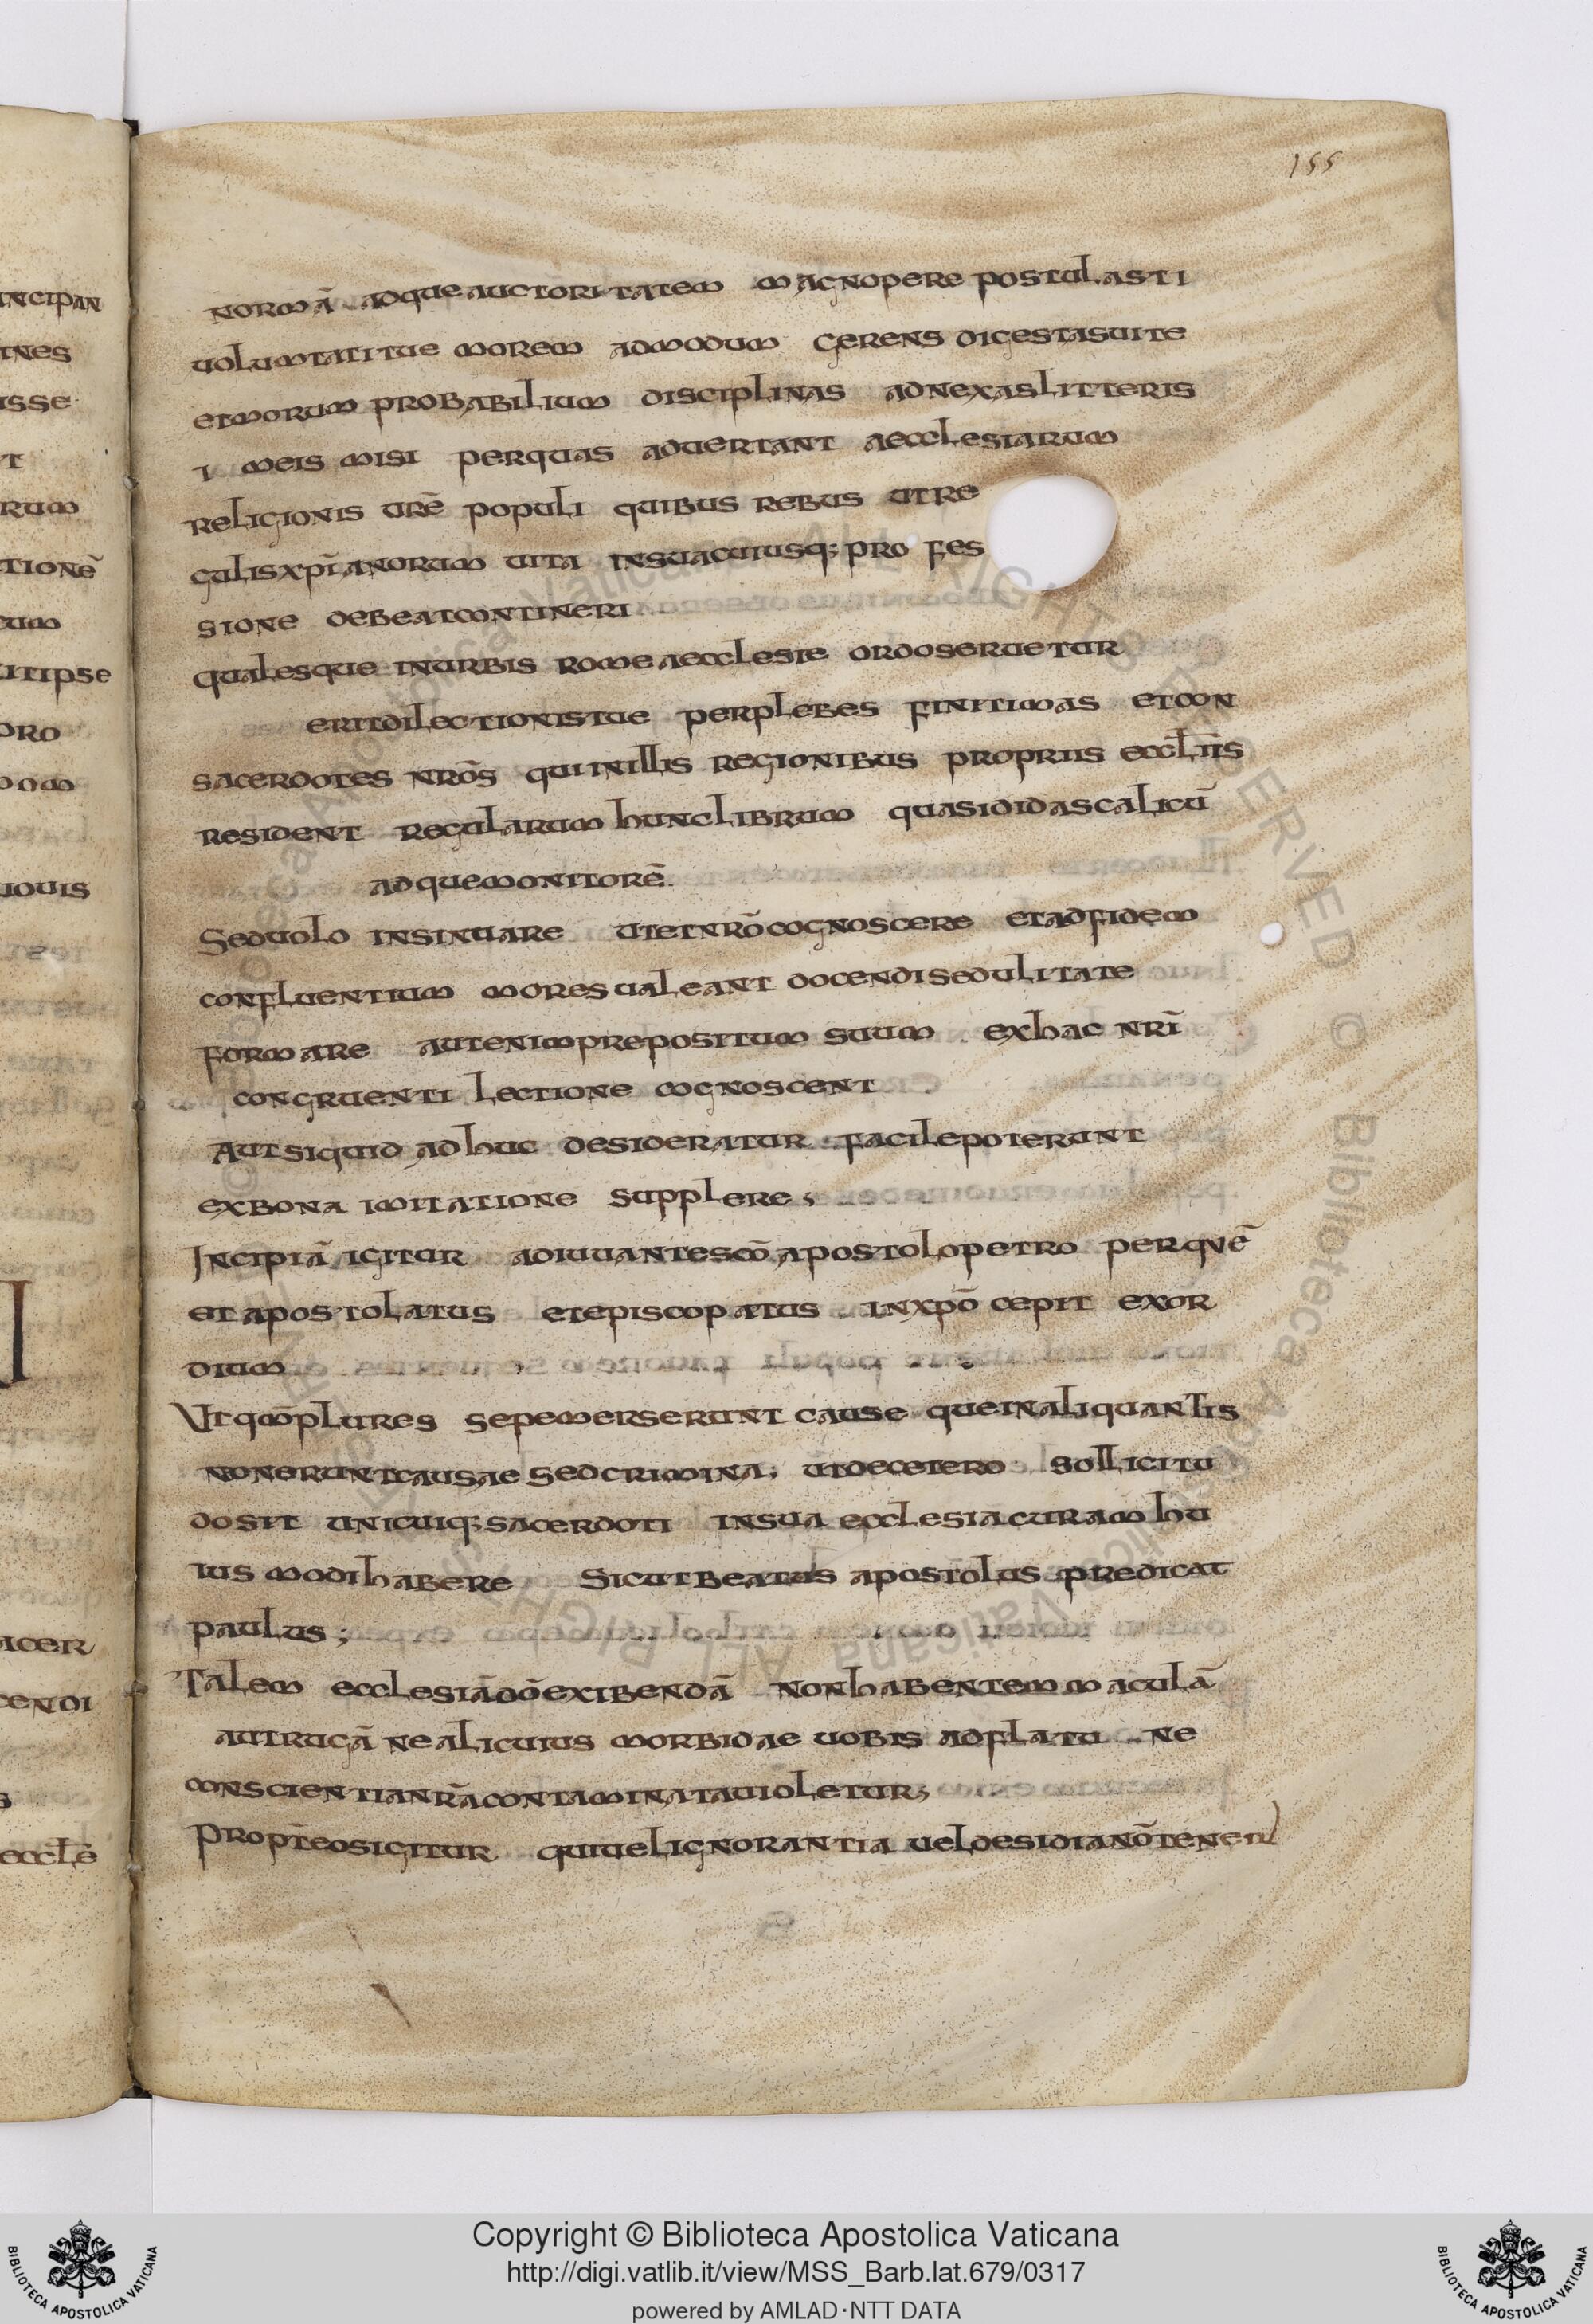 155
normā adque auctoritatem magnopere postulasti
uolumtati tue morem admodum gerens digestas uite
et morum probabilium disciplinas adnexas litteris
meis misi per quas aduertant aecclesiarum
religionis urē populi quibus rebus ut re
gulis xpīanorum uita in sua cuiusq; pro fes
sione debeat contineri
qualesque in urbis rome aecclesie ordo seruetur
erit dilectionis tue per plebes finitimas et con
sacerdotes nrōs qui in illis regionibus propriis eccliīs
resident regularum hunc librum quasi didascalicū
adque monitorē
Sed uolo insinuare ut et nrō cognoscere et ad fidem
confluentium mores ualeant docendi sedulitate
formare aut enim prepositum suum ex hac nrī
congruenti lectione cognoscent
Aut si quid adhuc desideratur facile poterunt
ex bona imitatione supplere;
Incipiā igitur adiuuante scō apostolo petro per quē
et apostolatus et episcopatus in xpō cepit exor
dium
Ut qm̄ plures sepe merserunt cause que in aliquantis
non erunt causae sed crimina; ūt de cetero sollicitu
do sit unicuiq; sacerdoti in sua ecclesia curam hu
ius modi habere Sicut beatus apostolus predicat
paulus;
Talem ecclesiā dō exibendā non habentem maculā
aut rugā ne alicuius morbidae uobis adflatu ne
conscientia nrā contaminata uioletur;
Propt̄ eos igitur qui uel ignorantia uel desidia nō tenent
incipan
ines
isse
t
rum
tionē
cum
it ipse
pro
dom
uouis
I
acer
cendi
s
ecclē
Copyright © Biblioteca Apostolica Vaticana
http://digi.vatlib.it/view/MSS_Barb.lat.679/0317
powered by AMLAD·NTT DATA
BIBLIOTECA APOSTOLICA VATICANA
BIBLIOTECA APOSTOLICA VATICANA